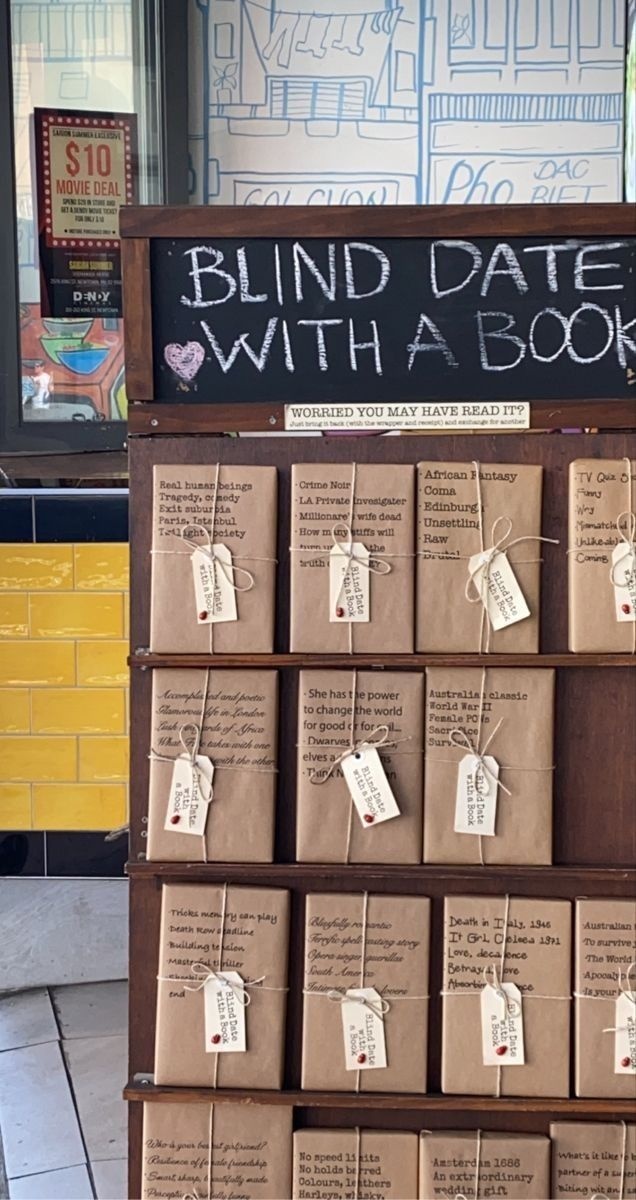 SAIGON SUMMER EXCLUSIVE
$10
MOVIE DEAL
SPEND $20 IN STORE AND
GET A DENDY MOVIE TICKET
FOR ONLY $10
SAIGON SUMMER
DENDY
CINEMAS
Pho DAC
BIET
BLIND DATE
WITH A BOOK
WORRIED YOU MAY HAVE READ IT?
Just bring it back (with the wrapper and receipt) and exchange for another
Real human beings
Tragedy, comedy
Exit suburbia
Paris, Istanbul
Twilight society
Blind Date
with a Book
· Crime Noir
· LA Private Invesigater
· Millionare's wife dead
· How many stiffs will
turn up the
truth
Blind Date
with a Book
· African Fantasy
· Coma
· Edinburgh
· Unsettling
· Raw
Brutal
Blind Date
with a Book
· TV Quiz
· Funny
· Wry
· Mismatched
· Unlikeable
· Coming
Accomplished and poetic
Glamorous life in London
Lush
of Africa
What
takes with one
with the other
Blind Date
with
a Book
· She has the power
to change the world
for good or for evil
· Dwarves,
elves
· Think
Blind Date
with a Book
Australian classic
· World War II
Female POWs
Sacrifice
Survival
Blind Date
with a Book
· Tricks memory can play
· Death Row deadline
· Building tension
· Masterful thriller
end
Blind Date
with a Book
· Blissfully romantic
· Terrific spell casting story
· Opera singer, guerillas
· South America
· Intimate
lovers
Blind Date
with a
Book
· Death in Italy, 1946
· It Girl Chelsea 1971
Love, decadence
Betrayal, love
Absorbing
Blind Date
with
a Book
· Australian
· To survive
· The World
· Apocalyp
· Is your
Who is your best girlfriend?
· Resilience of female friendship
· Smart, sharp, beautifully made
· Perceptive
funny
No speed limits
No holds barred
Colours, leathers
Harleys, whisky,
· Amsterdam 1686
An extraordinary
wedding gift
What's it like
partner of a
Biting wit an